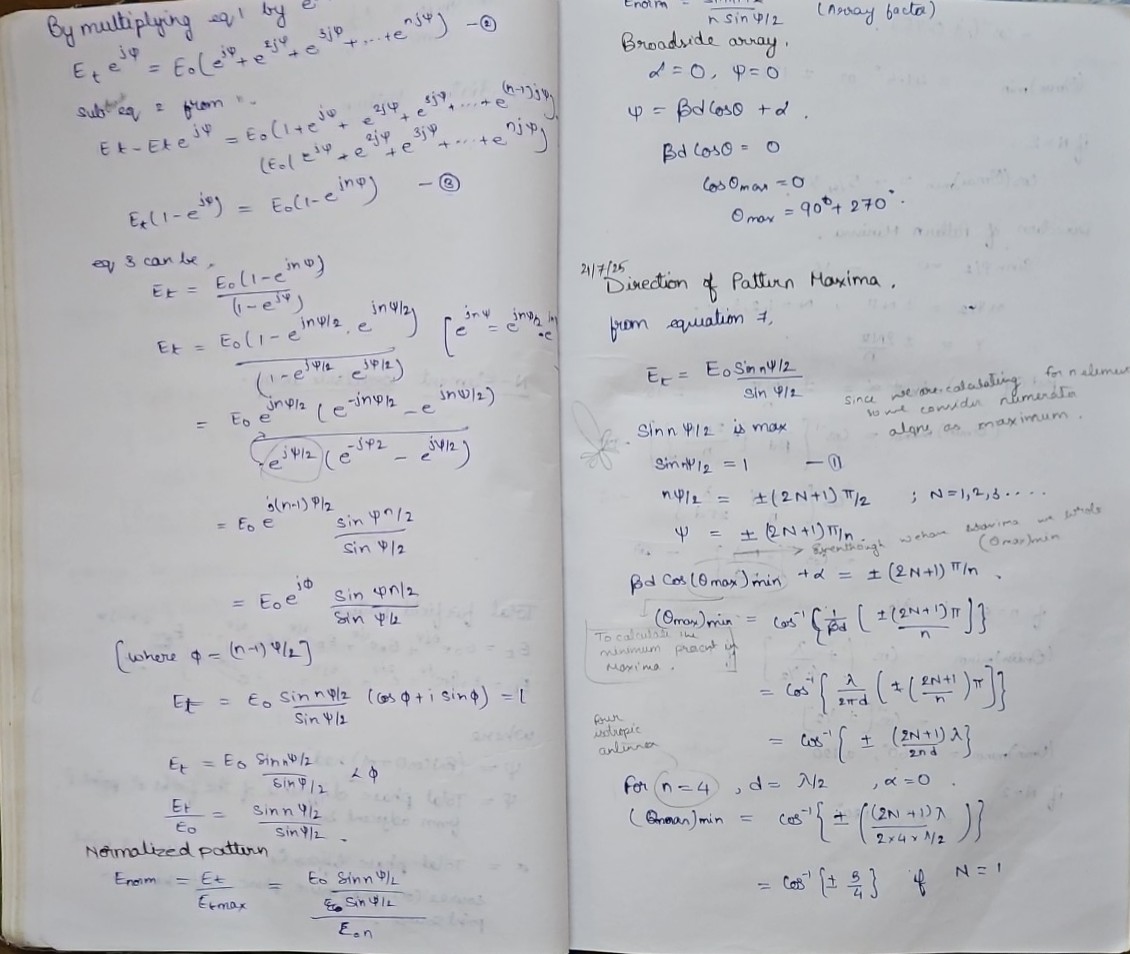 By multiplying eq 1 by e
E_t e^{jψ} = E_0 (e^{jψ} + e^{2jψ} + e^{3jψ} + ... + e^{njψ}) - ②
sub eq 2 from
E_t - E_t e^{jψ} = E_0 (1 + e^{jψ} + e^{2jψ} + e^{3jψ} + ... + e^{(n-1)jψ})
(E_0 ( e^{jψ} + e^{2jψ} + e^{3jψ} + ... + e^{njψ})
E_t (1 - e^{jψ}) = E_0 (1 - e^{jnψ}) - ③
eq 3 can be,
E_t = E_0 (1 - e^{jnψ}) / (1 - e^{jψ})
E_t = E_0 (1 - e^{jnψ/2} . e^{jnψ/2}) / (1 - e^{jψ/2} . e^{jψ/2}) [e^{jnψ} = e^{jnψ/2} . e
= E_0 e^{jnψ/2} (e^{-jnψ/2} - e^{jnψ/2}) / e^{jψ/2} (e^{-jψ2} - e^{jψ/2})
= E_0 e^{j(n-1)ψ/2} sin ψn/2 / sin ψ/2
= E_0 e^{jϕ} sin ψn/2 / sin ψ/2
[where ϕ = (n-1) ψ/2]
E_t = E_0 sin nψ/2 / sin ψ/2 (cos ϕ + i sin ϕ) = 1
E_t = E_0 sin nψ/2 / sin ψ/2 ∠ϕ
E_t / E_0 = sin n ψ/2 / sin ψ/2 .
Normalized pattern
E_norm = E_t / E_tmax = E_0 sin n ψ/2 / E_0 sin ψ/2 / E_0 n
Enorm = / n sin ψ/2 (Array factor)
Broadside array.
α = 0, ψ = 0
ψ = βd cosθ + α .
βd cosθ = 0
cosθmax = 0
θmax = 90° + 270°.
21/7/25
Direction of Pattern Maxima .
from equation 7,
E_t = E_0 sin nψ/2 / sin ψ/2
since we are calculating , for n elemen
so we consider numerator
alone as maximum .
sin n ψ/2 is max
sin nψ/2 = 1 - ①
nψ/2 = ±(2N+1) π/2 ; N = 1,2,3 ....
ψ = ± (2N+1) π/n .
→ Eventhough we have maxima we
(θmax)min
βd cos(θmax)min + α = ± (2N+1) π/n .
(θmax)min = cos⁻¹ { 1/βd [ ±(2N+1)π / n ] }
To calculate the
minimum
Maxima .
= cos⁻¹ { λ/2πd ( ± (2N+1 / n) π ] }
four
isotropic
antenna
= cos⁻¹ { ± (2N+1) λ / 2nd }
for n = 4 , d = λ/2 , α = 0 .
(θmax)min = cos⁻¹ { ± ( (2N+1) λ / 2×4×λ/2 ) }
= cos⁻¹ { ± 3/4 } if N = 1